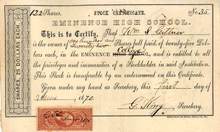 122 Shares. STOCK CERTIFICATE. No. 35
EMINENCE HIGH SCHOOL.
This is to Certify, That Wm S.
the owner of
Shares full paid, of twenty-five Dol-
lars, on the EMINENCE College and is entitled to all
the privileges and immunities of a Stockholder in said Institution.
This Stock is transferable by endorsement on this Certificate.
Given under my hand as Secretary, this First day of
1870
G. Secretary.
SHARES, 25 DOLLARS EACH.